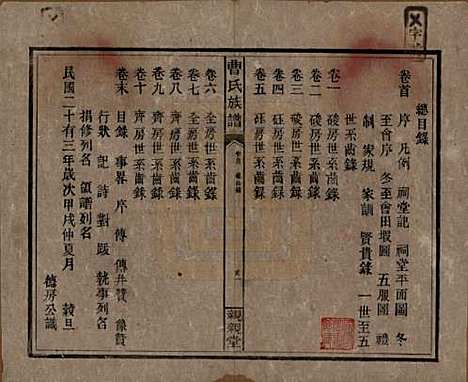 總目錄
卷首 序 凡例 祠堂記 祠堂平面圖 冬
至會序 冬至會田塅圖 五服圖 禮
制 家規 家訓 賢貴錄 一世至五
世系齒錄
卷一 稜房世系齒錄
卷二 稜房世系齒錄
卷三 稜房世系齒錄
卷四 稜房世系齒錄
卷五 稜房世系齒錄
曹氏族譜
卷首 總目錄
親親堂
卷六 全房世系齒錄
卷七 全房世系齒錄
卷八 齊房世系齒錄
卷九 齊房世系齒錄
卷十 齊房世系齒錄
卷末 目錄 事畧 序 傳 傳并贊 像贊
行狀 記 詩 對 跋 執事列名
捐修列名 領譜列名
民國二十有三年歲次甲戌仲夏月 穀旦
德房公識